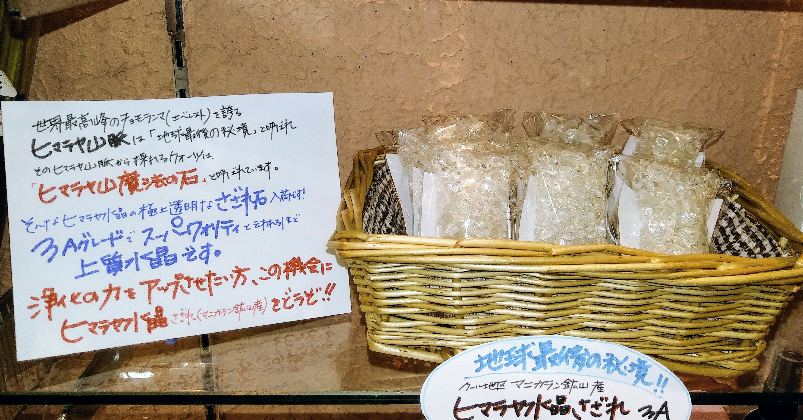 世界最高峰のチョモランマ(エベレスト)を誇る
ヒマラヤ山脈は「地球最後の秘境」と呼ばれ
そのヒマラヤ山脈から採れるクォーツは、
「ヒマラヤ山魔法の石」と呼ばれています。
そんなヒマラヤ水晶の極上透明なさざれ石入荷です!
3Aグレードでスーパークォリティと言われるまで
上質水晶です。
浄化の力をアップさせたい方、この機会に
ヒマラヤ水晶さざれ(マニカラン鉱山産)をどうぞ!!
地球最後の秘境!!
クール地区 マニカラン鉱山産
ヒマラヤ水晶さざれ 3A